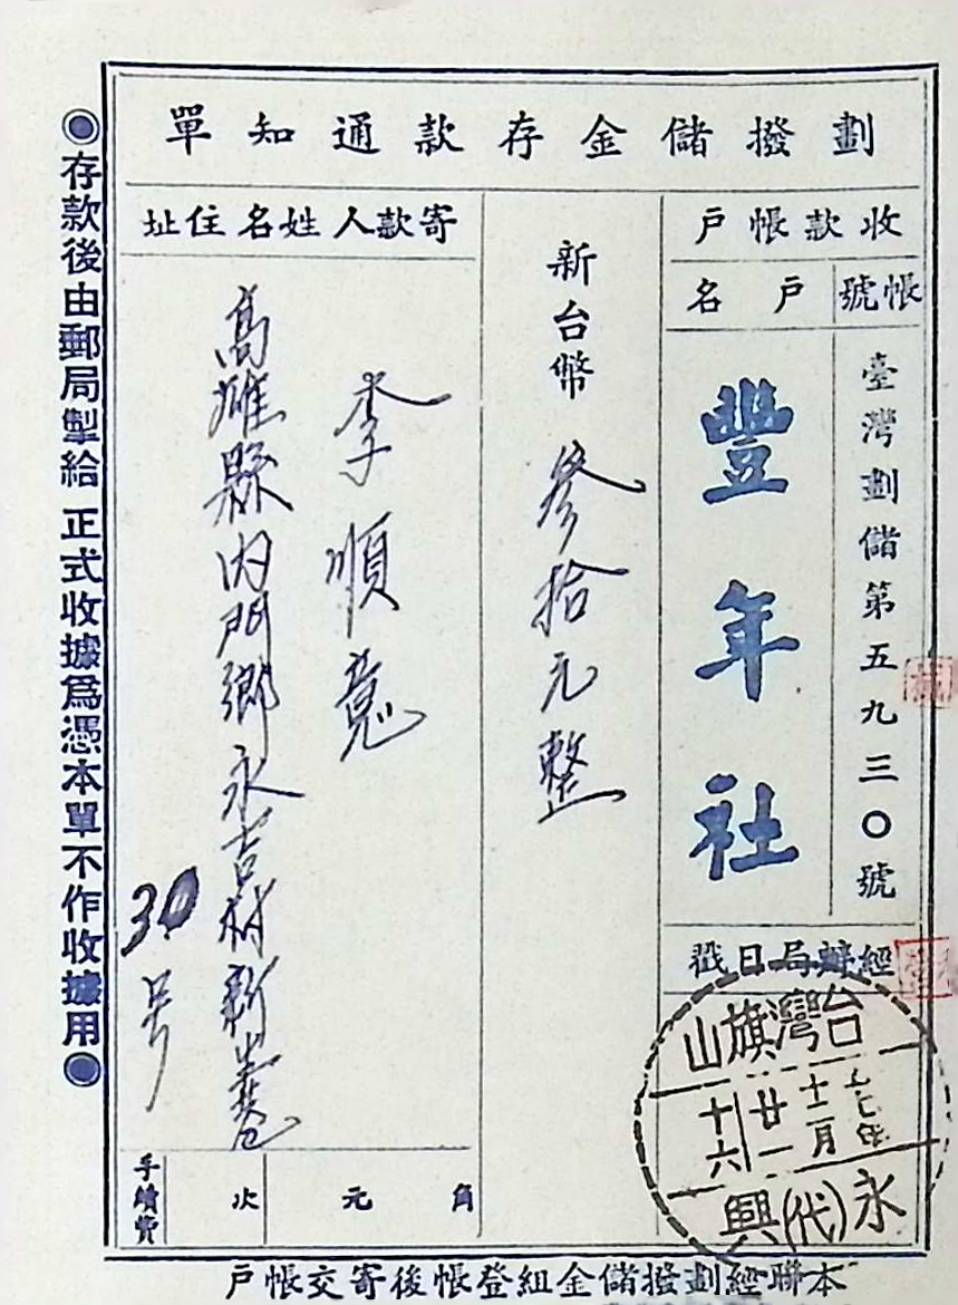 劃撥儲金存款通知單
收款帳戶
帳號
戶名
臺灣劃儲第五九三〇號
豐年社
新台幣 參拾元整
寄款人姓名住址
李順意
高雄縣內門鄉永吉村新巷
30号
經辦局日戳
台灣旗山
七年
十二月
廿一
十六
永(代)興
角
元
次
手續費
本聯經劃撥儲金組登帳後寄交帳戶
◉存款後由郵局掣給正式收據為憑本單不作收據用◉